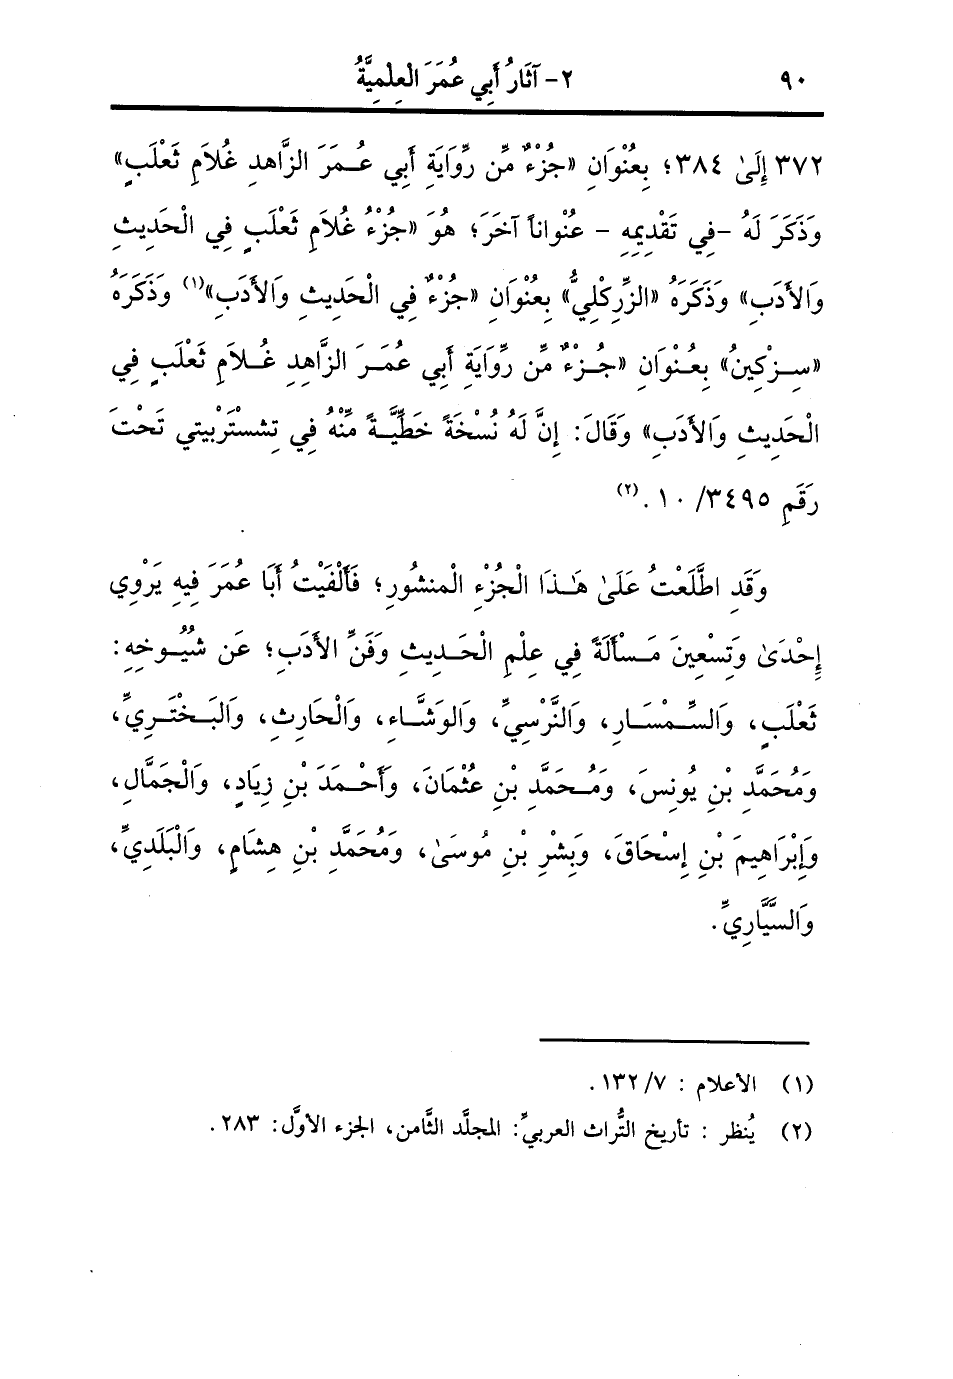 ٩٠ ٢- آثَارُ أَبِي عُمَرَ الْعِلْمِيَّةُ
٣٧٢ إِلَىٰ ٣٨٤؛ بِعُنْوَانِ «جُزْءٌ مِّن رِّوَايَةِ أَبِي عُـمَرَ الزَّاهدِ غُلاَمِ ثَعْلَبٍ»
وَذَكَرَ لَهُ -فِي تَقْدِيمِهِ - عنْواناً آخَرَ؛ هُوَ «جُزْءُ غُلاَمِ ثَعْلَبٍ فِي الْحَدِيثِ
وَالأَدَبِ» وَذَكَرَهُ «الزِّرِكْلِيُّ» بِعُنْوَانِ «جُزْءٌ فِي الْحَدِيثِ وَالأَدَبِ»(١) وَذَكَرَهُ
«سِـزْكِينُ» بِعُـنْوَانِ «جُـزْءٌ مِّن رِّوَايَةِ أَبِي عُمَـرَ الزَّاهِدِ غُـلاَمِ ثَعْلَبٍ فِي
الْحَدِيثِ وَالأَدَبِ» وَقَالَ: إِنَّ لَهُ نُسْخَةً خَطِّيَّـةً مِّنْهُ فِي تِشسْتَرْبِيتي تَحْتَ
رَقَمِ ٣٤٩٥/ ١٠ .(٢)
وَقَدِ اطَّلَعْتُ عَلَىٰ هَـٰذَا الْجُزْءِ الْمنشُورِ؛ فَأَلْفَيْتُ أَبَا عُمَرَ فِيهِ يَرْوِي
إِحْدَىٰ وَتِسْعِينَ مَـسْأَلَةً فِي عِلْمِ الْحَـدِيثِ وَفَنِّ الأَدَبِ؛ عَن شُيُـوخِهِ:
ثَعْلَبٍ، وَالسِّـمْسَـارِ، وَالنَّرْسِيِّ، وَالوَشَّـاءِ، وَالْحَارِثِ، وَالبَـخْتَـرِيِّ،
وَمُحَمَّدِ بْنِ يُونِسَ، وَمُـحَمَّدِ بْنِ عُثْمَانَ، وَأَحْـمَدَ بْنِ زِيَادٍ، وَالْجَمَّالِ،
وَإِبْرَاهِيمَ بْنِ إِسْحَاقَ، وَبِشْرِ بْنِ مُوسَىٰ، وَمُحَمَّدِ بْنِ هِشَامٍ، وَالْبَلَدِيِّ،
وَالسَّيَّارِيِّ.
(١) الأعلام : ٧/ ١٣٢.
(٢) يُنظر : تأريخ التُّراث العربيِّ: المجلَّد الثَّامن، الجزء الأوَّل: ٢٨٣.